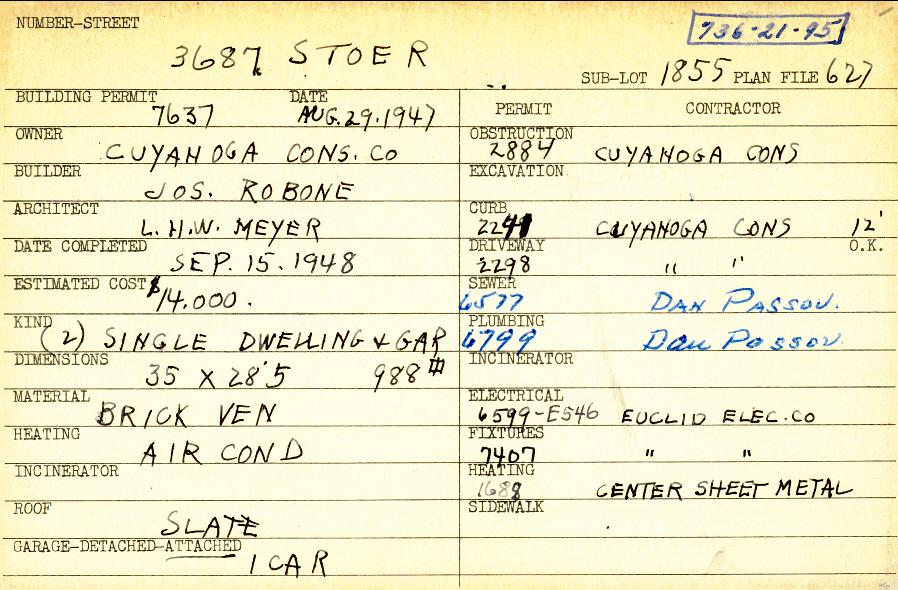 NUMBER-STREET
736-21-95
3687 STOER
SUB-LOT 1855 PLAN FILE 627
BUILDING PERMIT DATE
7637 AUG. 29. 1947
OWNER
CUYAHOGA CONS. CO
BUILDER
JOS. ROBONE
ARCHITECT
L. H. W. MEYER
DATE COMPLETED
SEP. 15. 1948
ESTIMATED COST $
14,000.
KIND
(2) SINGLE DWELLING & GAR
DIMENSIONS
35 X 28'5 988 #
MATERIAL
BRICK VEN
HEATING
AIR COND
INCINERATOR
ROOF
SLATE
GARAGE-DETACHED-ATTACHED
1 CAR
PERMIT CONTRACTOR
OBSTRUCTION
2884 CUYAHOGA CONS
EXCAVATION
CURB
2241 CUYAHOGA CONS 12'
DRIVEWAY O.K.
2298 " "
SEWER
6577 DAN PASSOV.
PLUMBING
6799 Dan Possov.
INCINERATOR
ELECTRICAL
6599-E546 EUCLID ELEC. CO
FIXTURES
7407 " "
HEATING
1688 CENTER SHEET METAL
SIDEWALK